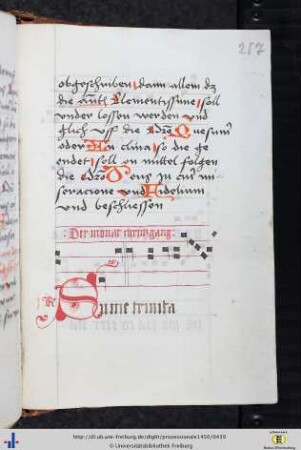 257
obgeschriben dann allein dz
die antl Clementissime soll
vnder lossen werden vnd
glich vff die Quesum
oder Inclina so die ge
endet soll on mittel folgen
die Deus zu
seracione vnd Fidelium
vnd beschliessen
Der monat
Summe trinita
http://dl.ub.uni-freiburg.de/diglit/prozessionale1450/0419
© Universitätsbibliothek Freiburg